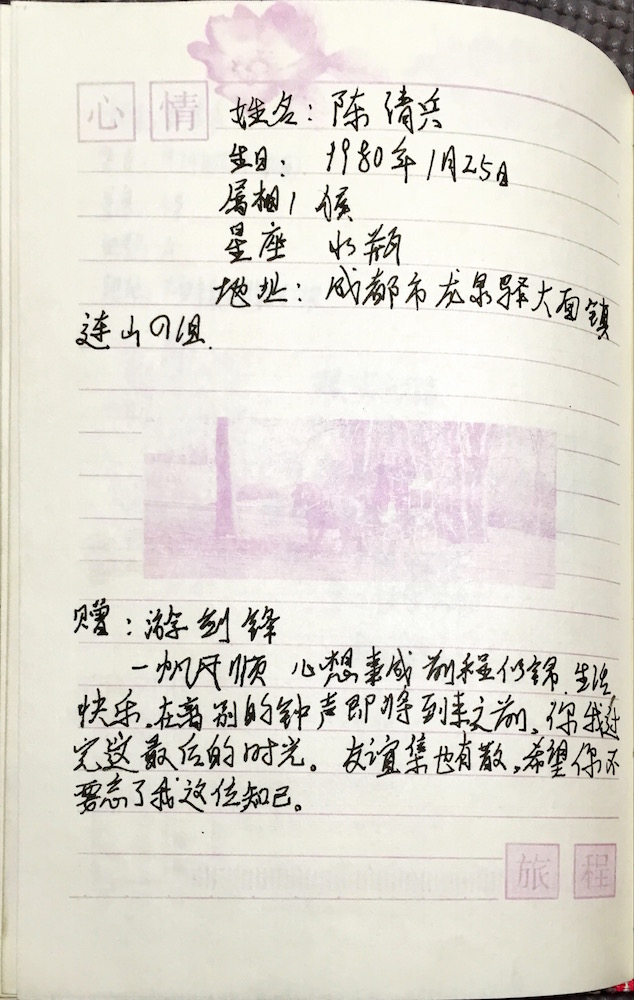 心情
姓名：陈清兵
生日：1980年1月25日
属相：猴
星座 水瓶
地址：成都市龙泉驿大面镇
连山四组.
赠：游剑锋
一帆风顺 心想事成 前程似锦.生活
快乐.在离别的钟声即将到来之前.你我过
完这最后的时光。友谊集也有散.希望你不
要忘了我这位知己。
旅程